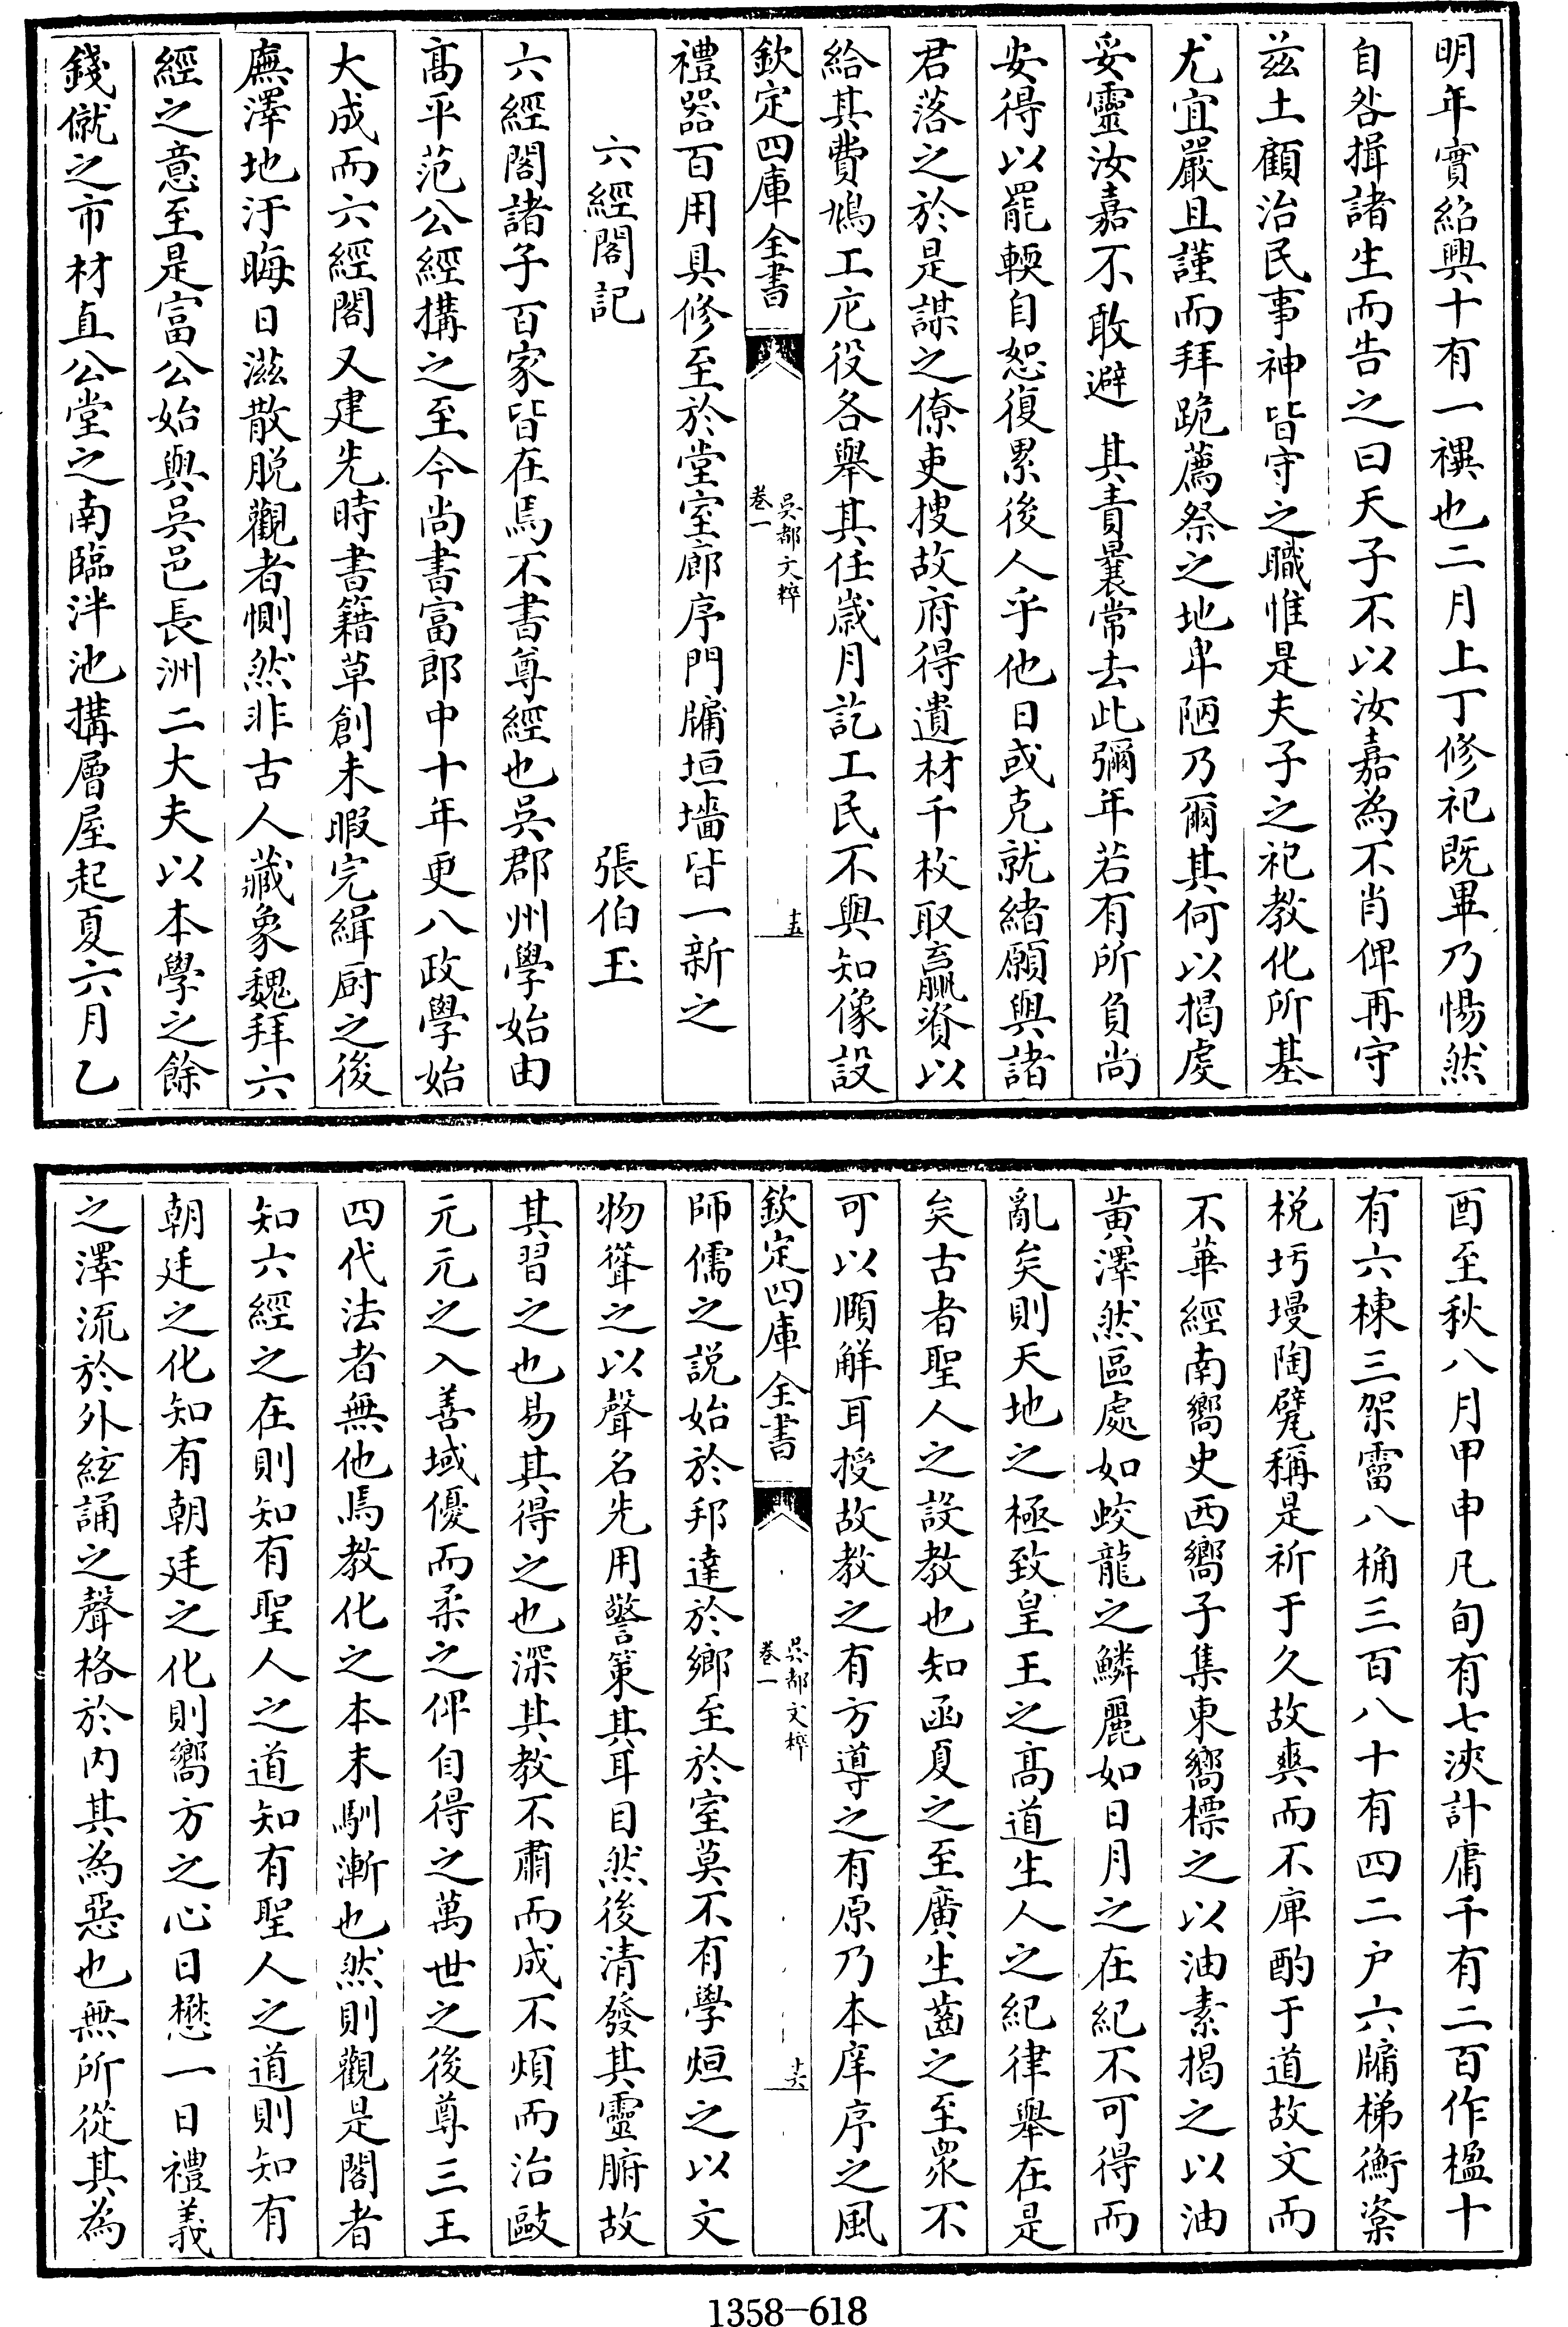 明年實紹興十有一禩也二月上丁修祀既畢乃惕然
自咎揖諸生而告之曰天子不以汝嘉為不肖俾再守
兹土顧治民事神皆守之職惟是夫子之祀教化所基
尤宜嚴且謹而拜跪薦祭之地卑陋乃爾其何以揭虔
妥靈汝嘉不敢避 其責曩常去此彌年若有所負尚
安得以罷輭自恕復累後人乎他日或克就緒願與諸
君落之於是謀之僚吏搜故府得遺材千枚取贏資以
給其費鳩工庀役各舉其任嵗月訖工民不與知像設
欽定四庫全書
吳都文粹
卷一
十五
禮器百用具修至於堂室廊序門牖垣墻皆一新之
六經閣記 張伯玉
六經閣諸子百家皆在焉不書尊經也吳郡州學始由
髙平范公經搆之至今尚書富郎中十年更八政學始
大成而六經閣又建先時書籍草創未暇完緝厨之後
廡澤地汙晦日滋散脱觀者惻然非古人藏象魏拜六
經之意至是富公始與吳邑長洲二大夫以本學之餘
錢僦之市材直公堂之南臨泮池搆層屋起夏六月乙
酉至秋八月甲申凡旬有七浹計庸千有二百作楹十
有六棟三架霤八桷三百八十有四二户六牖梯衡粢
梲圬墁陶甓稱是祈于久故爽而不庳酌于道故文而
不華經南嚮史西嚮子集東嚮標之以油素揭之以油
黄澤然區處如蛟龍之鱗麗如日月之在紀不可得而
亂矣則天地之極致皇王之髙道生人之紀律舉在是
矣古者聖人之設教也知函夏之至廣生齒之至衆不
可以順解耳授故教之有方導之有原乃本庠序之風
欽定四庫全書
吳都文粹
卷一
十六
師儒之説始於邦達於鄉至於室莫不有學烜之以文
物聳之以聲名先用警策其耳目然後清發其靈腑故
其習之也易其得之也深其教不肅而成不煩而治敺
元元之入善域優而柔之俾自得之萬世之後尊三王
四代法者無他焉教化之本末馴漸也然則觀是閣者
知六經之在則知有聖人之道知有聖人之道則知有
朝廷之化知有朝廷之化則嚮方之心日懋一日禮義
之澤流於外絃誦之聲格於内其為惡也無所從其為
1358-618